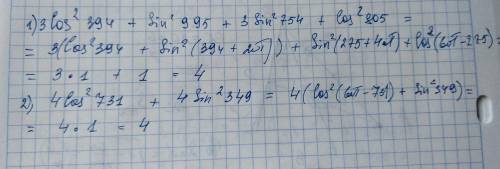 1) 3cos² 394 + sin² 995 + 3sin² 754 + cos² 805 =
= 3(cos² 394 + sin² (394 + 2π)) + sin² (275 + 4π) + cos² (6π - 275) =
= 3 · 1 + 1 = 4
2) 4cos² 731 + 4 sin² 349 = 4(cos² (6π - 731) + sin² 349) =
= 4 · 1 = 4